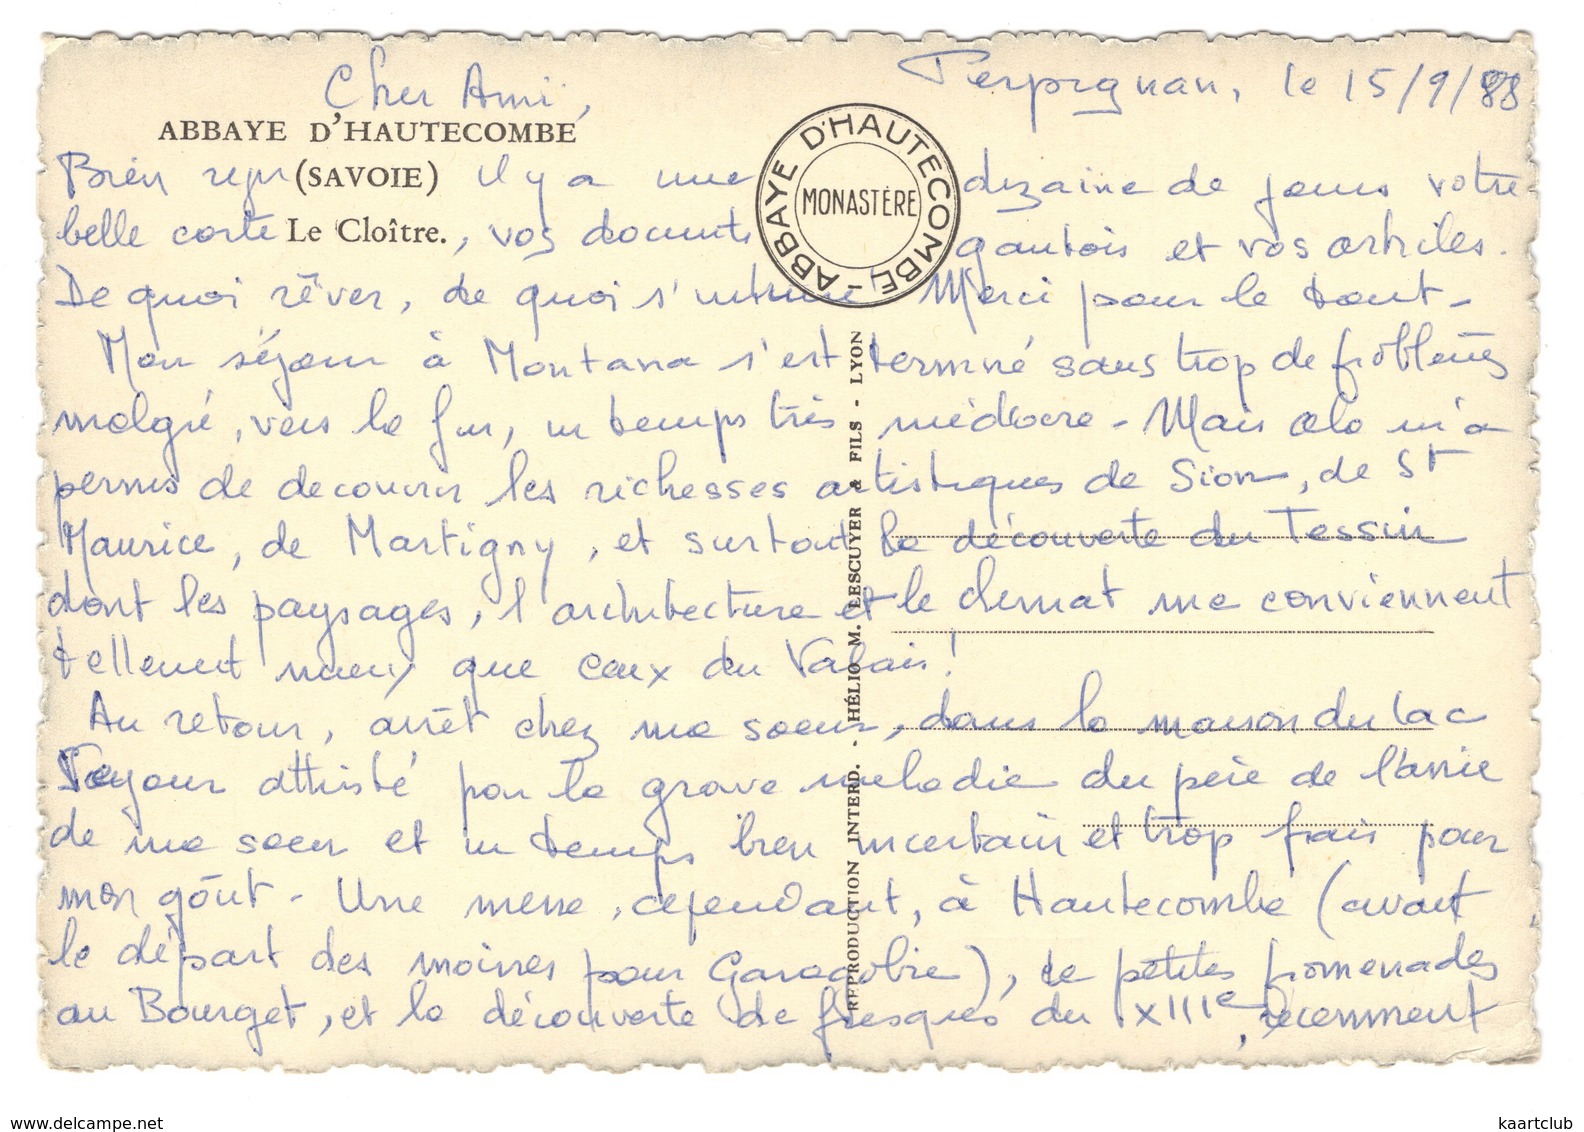 Perpignan, le 15/9/88
Cher Ami,
ABBAYE D'HAUTECOMBE
(SAVOIE)
Le Cloître.
ABBAYE D'HAUTECOMBE
MONASTÈRE
Bien reçu il y a une dizaine de jours votre
belle carte, vos documents gantois et vos articles.
De quoi rêver, de quoi s'instruire. Merci pour le tout.
Mon séjour à Montana s'est terminé sans trop de problèmes
malgré, vers la fin, un temps très médiocre. Mais cela m'a
permis de decouvrir les richesses artistiques de Sion, de St
Maurice, de Martigny, et surtout la découverte du Tessin
dont les paysages, l'architecture et le climat me conviennent
tellement mieux que ceux du Valais!
Au retour, arrêt chez ma soeur, dans la maison du lac
attristé par la grave maladie du père de l'amie
de ma soeur et un temps bien incertain et trop frais pour
mon goût. Une messe, cependant, à Hautecombe (avant
le départ des moines pour Ganagobie), de petites promenades
au Bourget, et la découverte de fresques du XIIIe, récemment
REPRODUCTION INTERD. - HÉLIO M. LESCUYER & FILS - LYON
www.delcampe.net
kaartclub